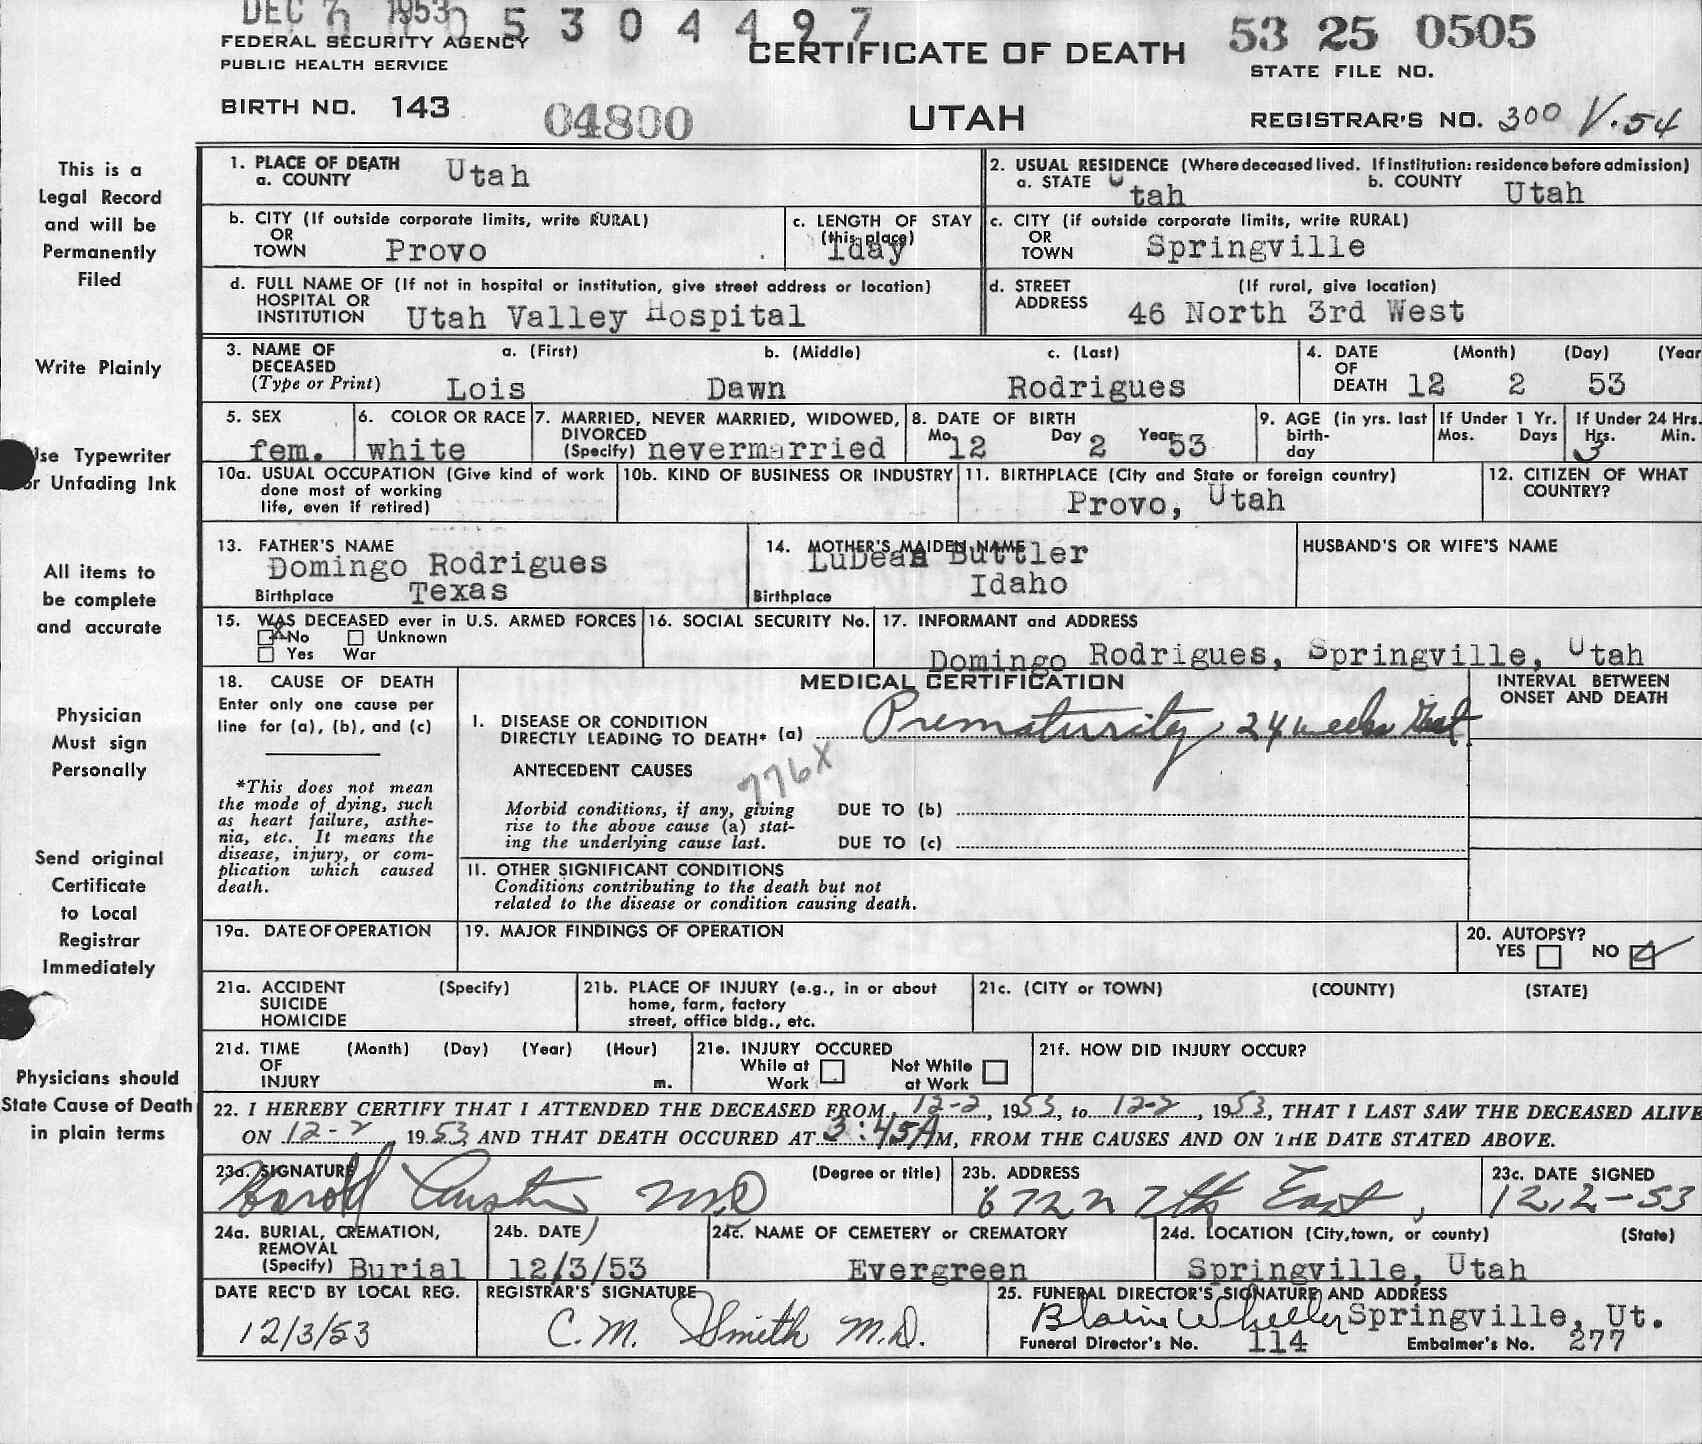 DEC 7 1953 0 5 3 0 4 4 9 7
53 25 0505
FEDERAL SECURITY AGENCY
PUBLIC HEALTH SERVICE
CERTIFICATE OF DEATH
STATE FILE NO.
BIRTH NO. 143
04800
UTAH
REGISTRAR'S NO. 300 V.54
This is a
Legal Record
and will be
Permanently
Filed
Write Plainly
Use Typewriter
or Unfading Ink
All items to
be complete
and accurate
Physician
Must sign
Personally
Send original
Certificate
to Local
Registrar
Immediately
Physicians should
State Cause of Death
in plain terms
1. PLACE OF DEATH
a. COUNTY Utah
2. USUAL RESIDENCE (Where deceased lived. If institution: residence before admission)
a. STATE Utah b. COUNTY Utah
b. CITY (If outside corporate limits, write RURAL)
OR
TOWN Provo
c. LENGTH OF STAY
(this place)
1day
c. CITY (if outside corporate limits, write RURAL)
OR
TOWN Springville
d. FULL NAME OF (If not in hospital or institution, give street address or location)
HOSPITAL OR
INSTITUTION Utah Valley Hospital
d. STREET (If rural, give location)
ADDRESS 46 North 3rd West
3. NAME OF a. (First) b. (Middle) c. (Last)
DECEASED
(Type or Print) Lois Dawn Rodrigues
4. DATE (Month) (Day) (Year
OF
DEATH 12 2 53
5. SEX
fem.
6. COLOR OR RACE
white
7. MARRIED, NEVER MARRIED, WIDOWED,
DIVORCED
(Specify) nevermarried
8. DATE OF BIRTH
Mo. 12 Day 2 Year 53
9. AGE (in yrs. last
birth-
day
If Under 1 Yr.
Mos. Days
If Under 24 Hrs.
Hrs. Min.
3
10a. USUAL OCCUPATION (Give kind of work
done most of working
life, even if retired)
10b. KIND OF BUSINESS OR INDUSTRY
11. BIRTHPLACE (City and State or foreign country)
Provo, Utah
12. CITIZEN OF WHAT
COUNTRY?
13. FATHER'S NAME
Domingo Rodrigues
Birthplace Texas
14. MOTHER'S MAIDEN NAME
LuDean Buttler
Birthplace Idaho
HUSBAND'S OR WIFE'S NAME
15. WAS DECEASED ever in U.S. ARMED FORCES
X No Unknown
Yes War
16. SOCIAL SECURITY No.
17. INFORMANT and ADDRESS
Domingo Rodrigues, Springville, Utah
18. CAUSE OF DEATH
Enter only one cause per
line for (a), (b), and (c)
*This does not mean
the mode of dying, such
as heart failure, asthe-
nia, etc. It means the
disease, injury, or com-
plication which caused
death.
MEDICAL CERTIFICATION
INTERVAL BETWEEN
ONSET AND DEATH
I. DISEASE OR CONDITION
DIRECTLY LEADING TO DEATH* (a) Prematurity 24 weeks Gest
776X
ANTECEDENT CAUSES
Morbid conditions, if any, giving
rise to the above cause (a) stat-
ing the underlying cause last.
DUE TO (b)
DUE TO (c)
II. OTHER SIGNIFICANT CONDITIONS
Conditions contributing to the death but not
related to the disease or condition causing death.
19a. DATE OF OPERATION
19. MAJOR FINDINGS OF OPERATION
20. AUTOPSY?
YES NO
21a. ACCIDENT (Specify)
SUICIDE
HOMICIDE
21b. PLACE OF INJURY (e.g., in or about
home, farm, factory
street, office bldg., etc.
21c. (CITY or TOWN) (COUNTY) (STATE)
21d. TIME (Month) (Day) (Year) (Hour)
OF
INJURY m.
21e. INJURY OCCURED
While at Work
Not While at Work
21f. HOW DID INJURY OCCUR?
22. I HEREBY CERTIFY THAT I ATTENDED THE DECEASED FROM 12-2, 1953, to 12-2, 1953, THAT I LAST SAW THE DECEASED ALIVE
ON 12-2, 1953 AND THAT DEATH OCCURED AT 3:45AM, FROM THE CAUSES AND ON THE DATE STATED ABOVE.
23a. SIGNATURE (Degree or title)
Harold Austin MD
23b. ADDRESS
672 N 7th East,
23c. DATE SIGNED
12,2-53
24a. BURIAL, CREMATION,
REMOVAL
(Specify) Burial
24b. DATE
12/3/53
24c. NAME OF CEMETERY or CREMATORY
Evergreen
24d. LOCATION (City, town, or county) (State)
Springville, Utah
DATE REC'D BY LOCAL REG.
12/3/53
REGISTRAR'S SIGNATURE
C. M. Smith M.D.
25. FUNERAL DIRECTOR'S SIGNATURE AND ADDRESS
Blaine Wheeler Springville, Ut.
Funeral Director's No. 114 Embalmer's No. 277